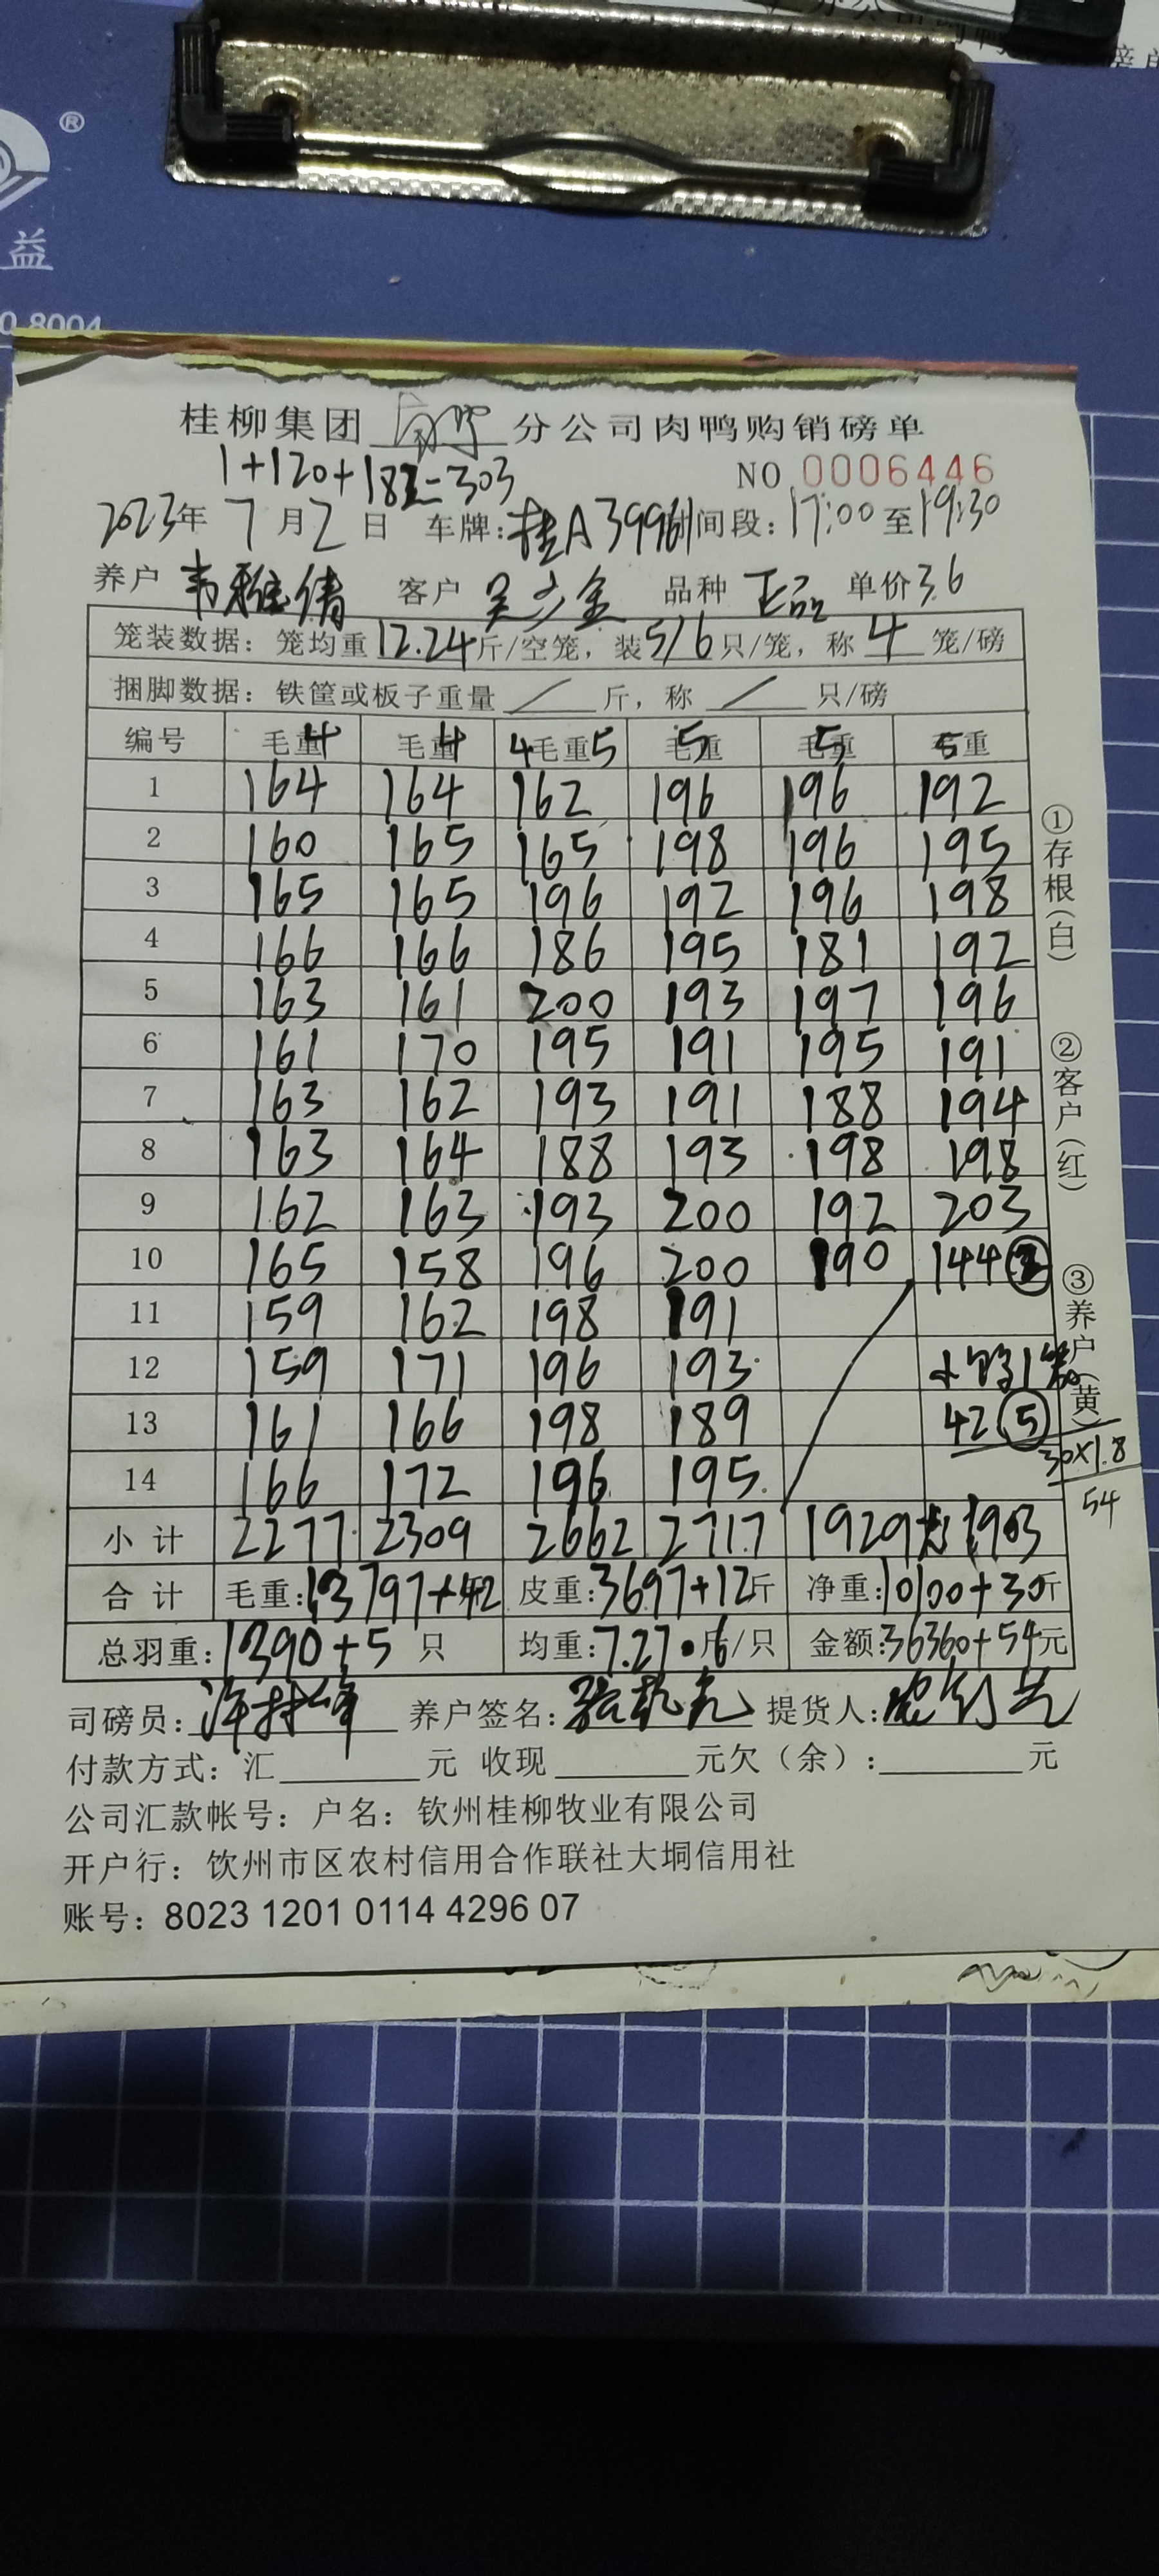 ®
益
0 8004
桂柳集团 南宁 分公司肉鸭购销磅单
1+120+182=303
NO 0006446
2023年 7 月 2 日 车牌: 桂A39961 时间段: 17:00 至 19:30
养户 韦雅倩 客户 吴少金 品种 正品 单价 3.6
笼装数据: 笼均重 12.24 斤/空笼, 装 5/6 只/笼, 称 4 笼/磅
捆脚数据: 铁筐或板子重量 / 斤, 称 / 只/磅
编号 毛重4 毛重4 4毛重5 毛重5 毛重5 毛重5
1 164 164 162 196 196 192
2 160 165 165 198 196 195
3 165 165 196 192 196 198
4 166 166 186 195 181 192
5 163 161 200 193 197 196
6 161 170 195 191 195 191
7 163 162 193 191 188 194
8 163 164 188 193 198 198
9 162 163 193 200 192 203
10 165 158 196 200 190 144
11 159 162 198 191
12 159 171 196 193
13 161 166 198 189 42 ⑤
14 166 172 196 195
30×1.8
54
小计 2277 2309 2662 2717 1929 1903
合计 毛重: 13797+42 皮重: 3697+12斤 净重: 10100+30斤
总羽重: 1390+5 只 均重: 7.27 斤/只 金额: 36360+54元
司磅员: 养户签名: 提货人:
付款方式: 汇 元 收现 元欠(余): 元
公司汇款帐号: 户名: 钦州桂柳牧业有限公司
开户行: 钦州市区农村信用合作联社大垌信用社
账号: 8023 1201 0114 4296 07
①存根(白)
②客户(红)
③养户(黄)